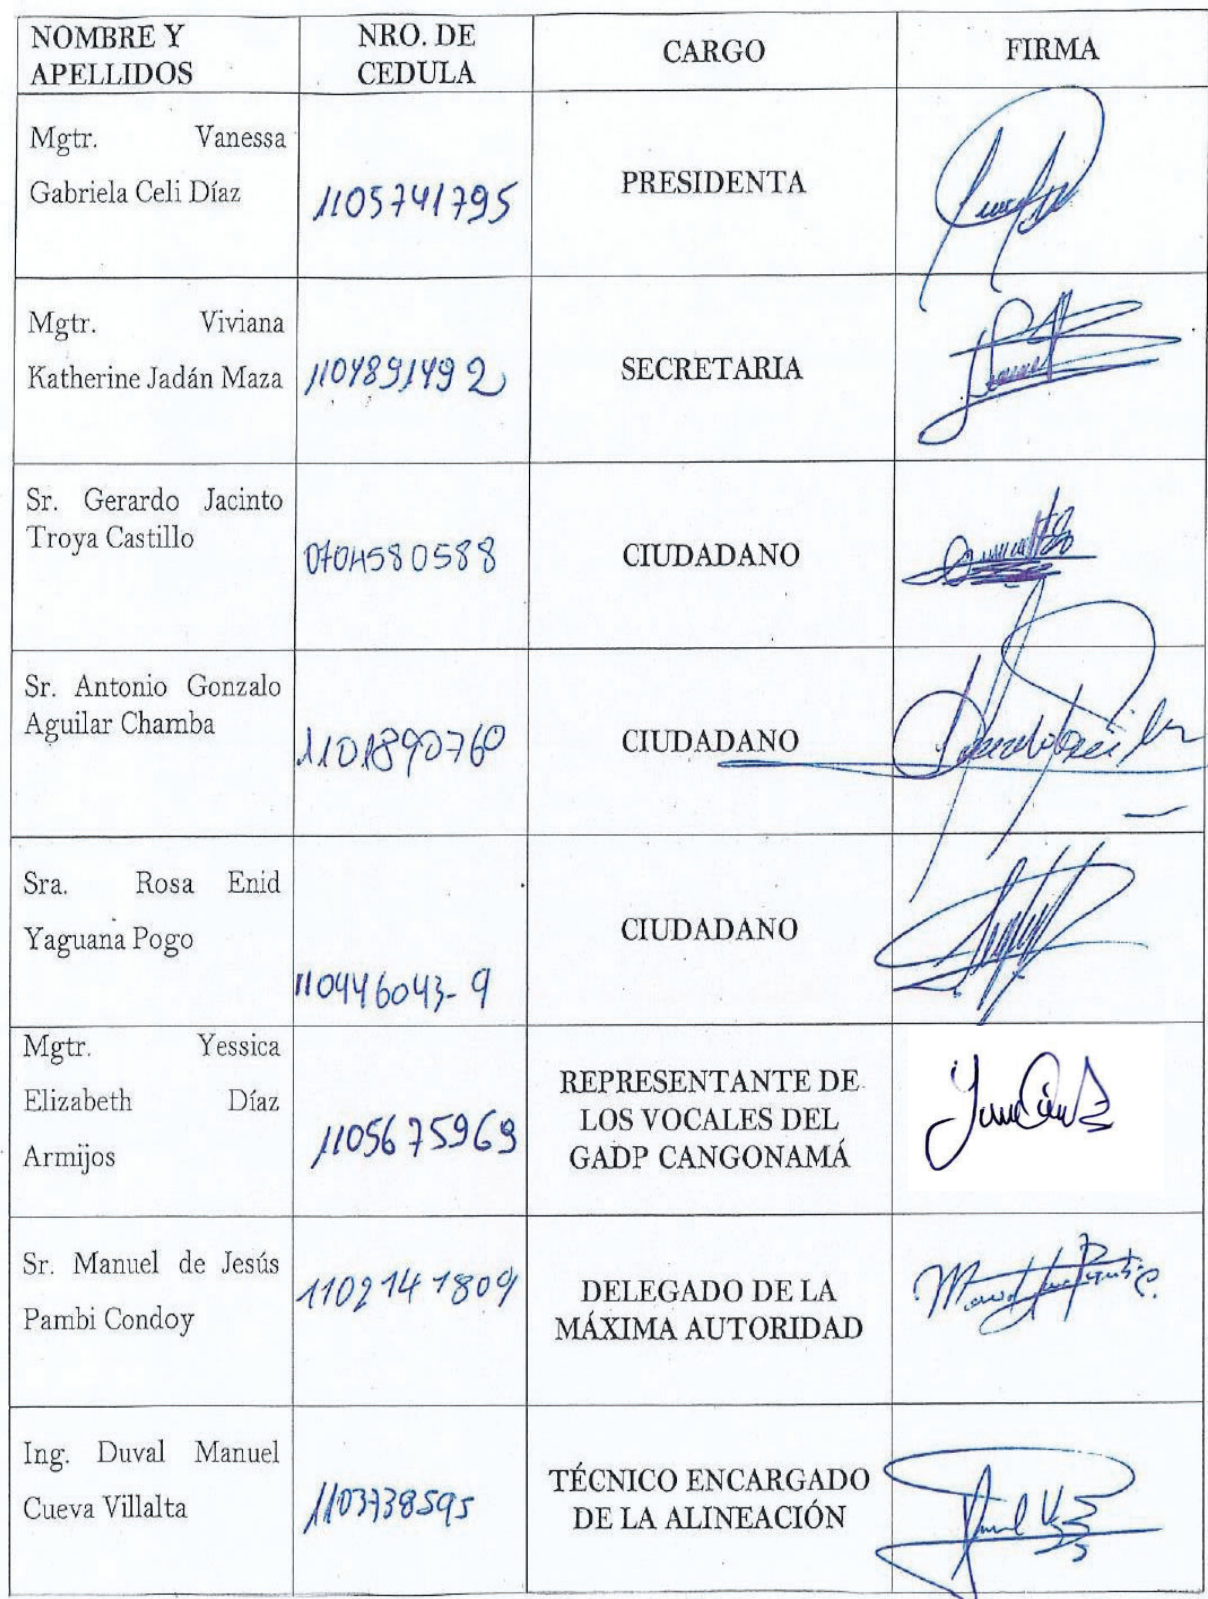 NOMBRE Y APELLIDOS NRO. DE CEDULA CARGO FIRMA
Mgtr. Vanessa
Gabriela Celi Díaz 1105741795 PRESIDENTA
Mgtr. Viviana
Katherine Jadán Maza 1104891492 SECRETARIA
Sr. Gerardo Jacinto
Troya Castillo 0704580588 CIUDADANO
Sr. Antonio Gonzalo
Aguilar Chamba 1101890760 CIUDADANO
Sra. Rosa Enid
Yaguana Pogo 110446043-9 CIUDADANO
Mgtr. Yessica
Elizabeth Díaz
Armijos 1105675969 REPRESENTANTE DE
LOS VOCALES DEL
GADP CANGONAMÁ
Sr. Manuel de Jesús
Pambi Condoy 1102141809 DELEGADO DE LA
MÁXIMA AUTORIDAD
Ing. Duval Manuel
Cueva Villalta 1103738595 TÉCNICO ENCARGADO
DE LA ALINEACIÓN